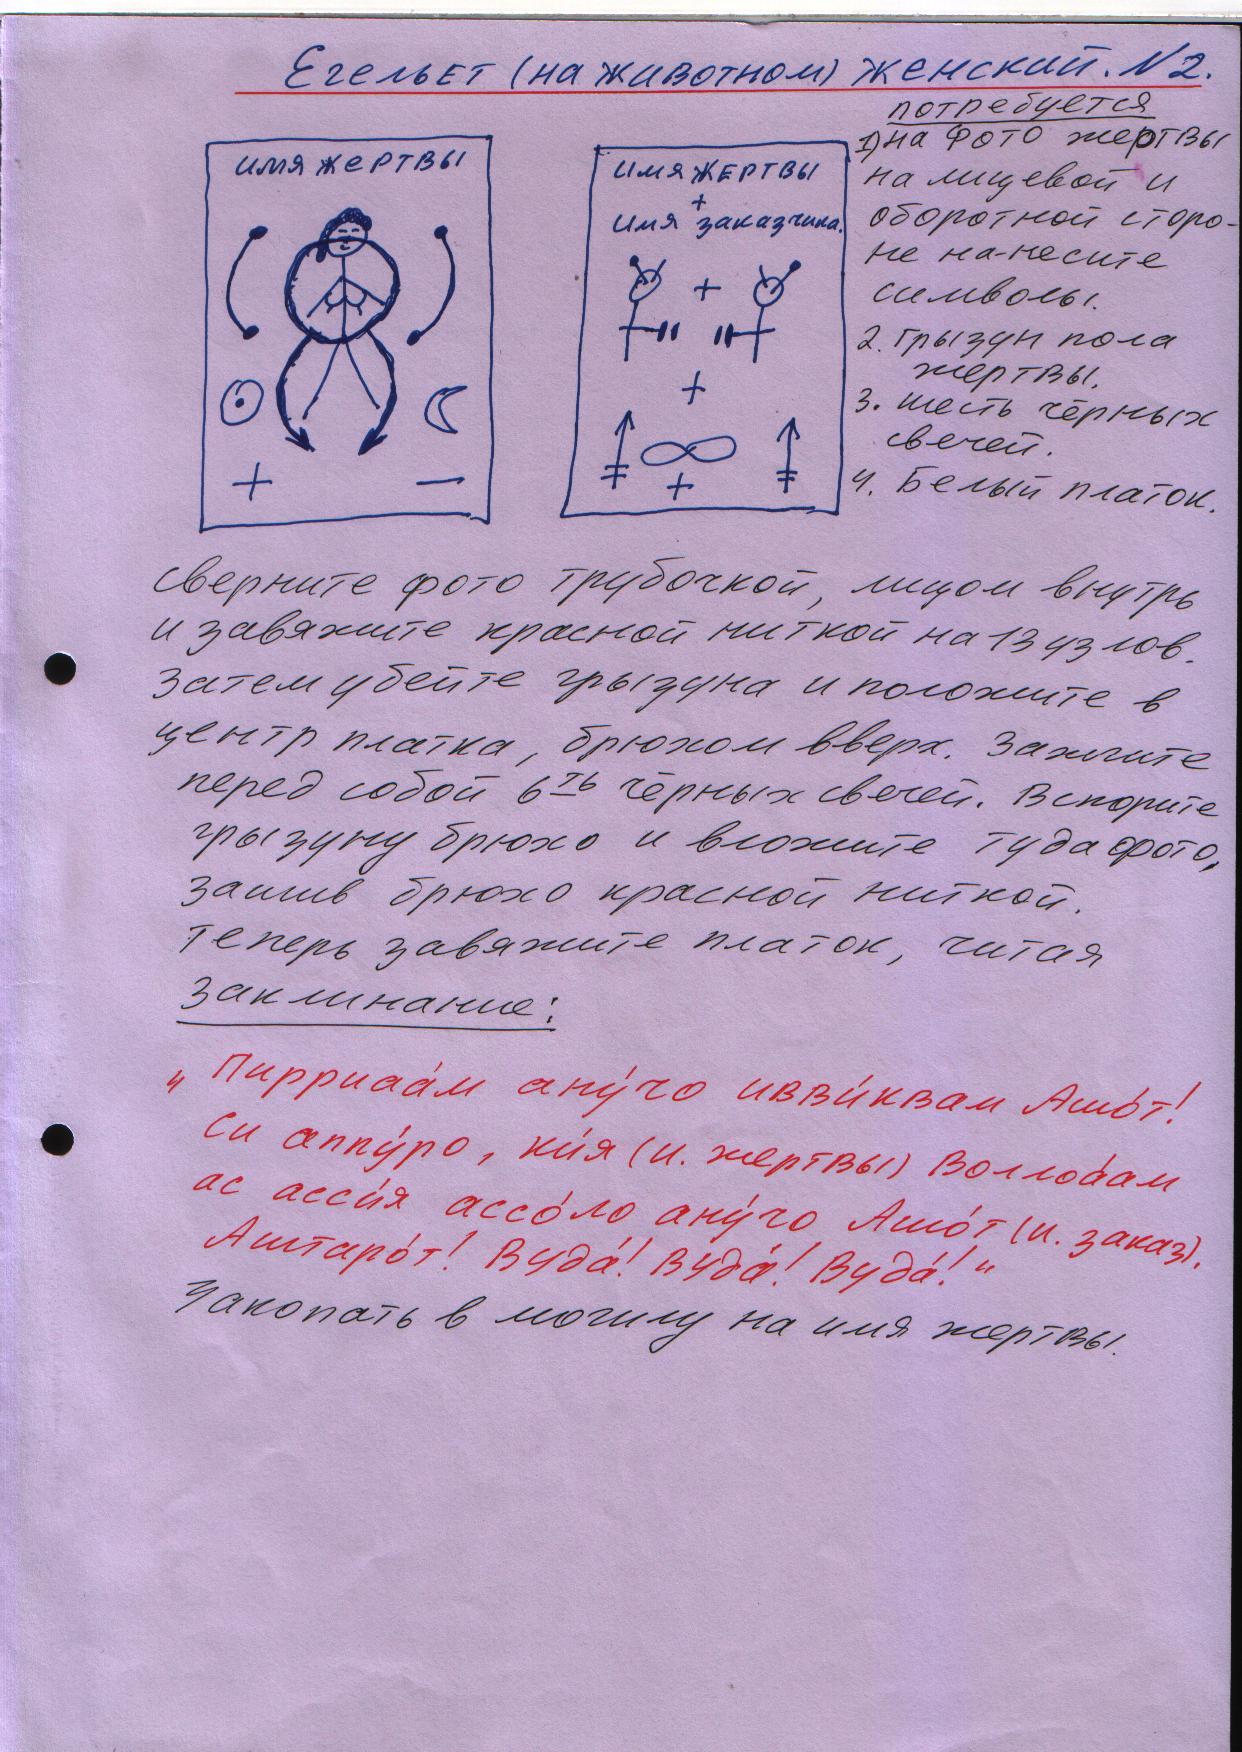 Егельет (на животном) женский. N2.
имя жертвы
имя жертвы
+
имя заказчика.
+
+
+
+
−
потребуется
1) на фото жертвы
на лицевой и
оборотной сторо-
не на-несите
символы.
2. Грызун пола
жертвы.
3. шесть чёрных
свечей.
4. Белый платок.
сверните фото трубочкой, лицом внутрь
и завяжите красной ниткой на 13 узлов.
Затем убейте грызуна и положите в
центр платка, брюхом вверх. Зажгите
перед собой 6ть чёрных свечей. Вспорите
грызуну брюхо и вложите туда фото,
зашив брюхо красной ниткой.
Теперь завяжите платок, читая
заклинание:
„Пирриаа́м ану́чо ивви́квам Ашо́т!
Си аппу́ро, ки́я (и. жертвы) Воллоа́ам
ас асси́я ассо́ло ану́чо Ашо́т (и. заказ).
Аштаро́т! Вуда́! Вуда́! Вуда́!"
Закопать в могилу на имя жертвы.